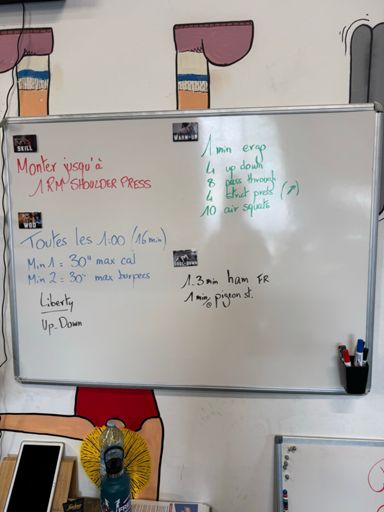 SKILL
Monter jusqu'à
1 RM SHOULDER PRESS
WOD
Toutes les 1:00 (16 min)
Min 1 = 30" max cal
Min 2 = 30" max burpees
Liberty
Up-Down
WARM-UP
1 min ergo
4 up down
8 pass through
4 strict press (↗)
10 air squats
COOL-DOWN
1-3 min ham FR
1 min/ pigeon st.